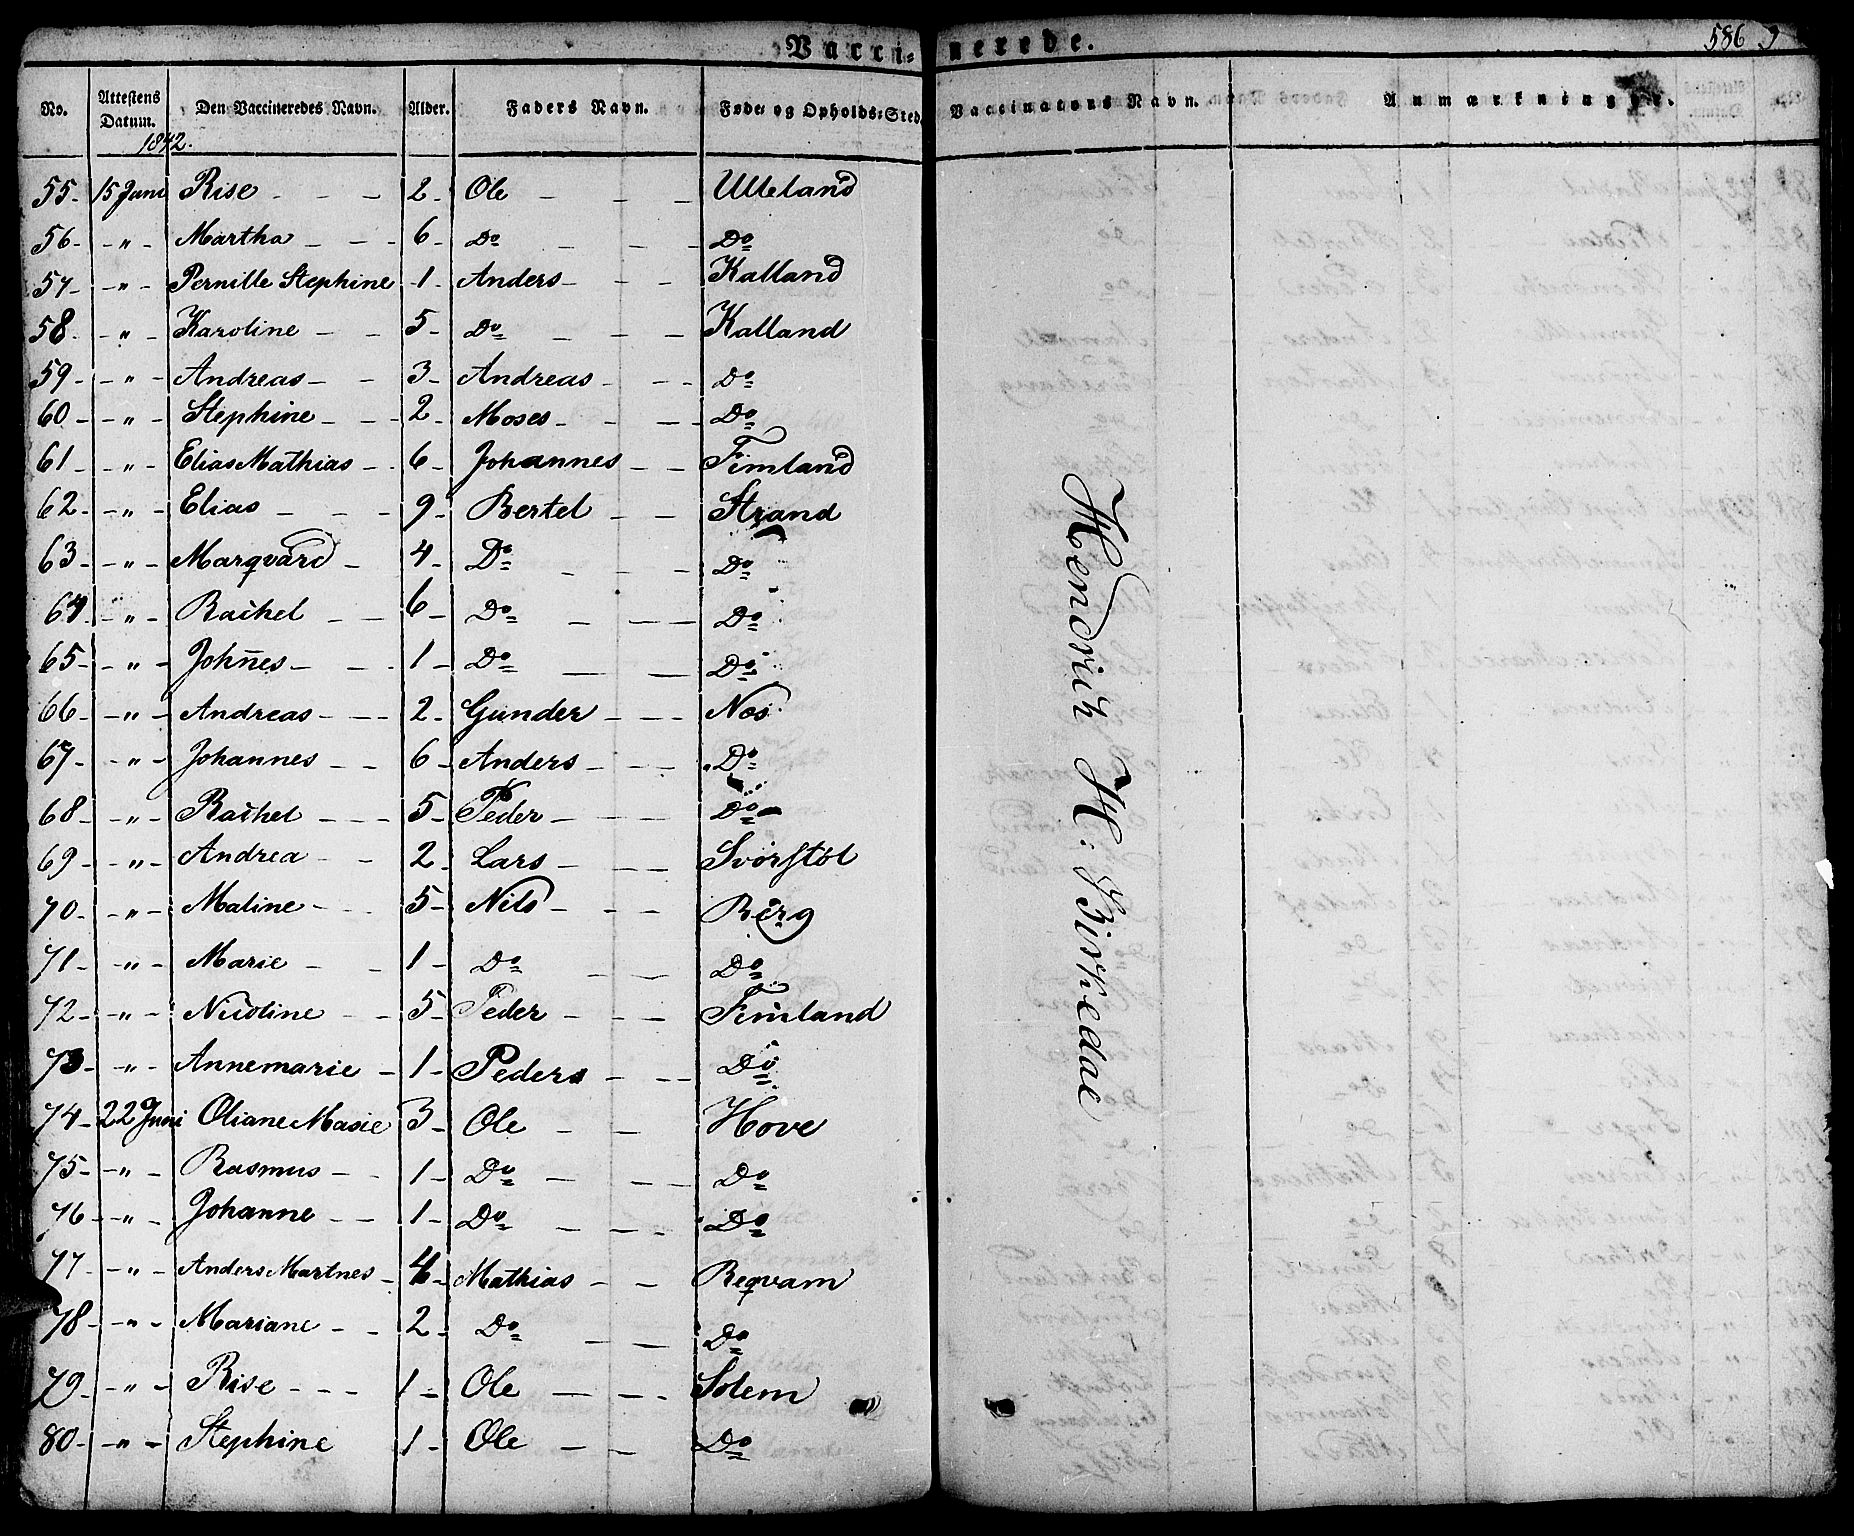 Vacci- nerede. 586 9
No. Attestens Datum. Den Vaccineredes Navn. Alder. Faders Navn. Føde- og Opholds-Sted. Vaccinatons Navn. Anmærkninger.
1842.
55- 15 Juni Rise - - - 2- Ole - - - Ulleland
56- - " - Martha - - - 6- Do - - - Do
57- - " - Pernille Stephine - 1 - Anders - - - Kalland
58- - " - Karoline - - 5- Do - - - Kalland
59- - " - Andreas - - 3- Andreas - - - Do
60- - " - Stephine - - - 2- Moses - - - - Do
61- - " - Elias Mathias - - 6- Johannes - - Fimland
62- - " - Elias - - - 9- Bertel - - Strand
63- - " - Marqvard - 4- Do - - - Do
64- - " - Rachel - - 6- Do - - - Do
65- - " - Joh̅nes - - - 1- Do - - - Do
66- - " - Andreas - - - 2- Gunder - - - Nos
67- - " - Johannes - - 6- Anders - - - Do
68- - " - Rachel - - - 5- Peder - - - Do
69- - " - Andrea - - 2- Lars - - - Svörstöl
70- - " - Maline - - - 5- Nils - - - Berg
71- - " - Marie - - 1- Do - - - Do
72- - " - Nicoline - - 5- Peder - - - Fimland
73- - " - Annemarie - 1- Peders - - - Do
74- 22 Juni Oliane Marie 3- Ole - - Hove
75- - " - Rasmus - - 1- Do - - - Do
76- - " - Johanne - - 1- Do - - - Do
77- - " - Anders Martnes - 4- Mathias - - Reqvam
78- - " - Mariane - - 2- Do - - - Do
79- - " - Rise - - - 1- Ole - - - Solem
80- - " - Stephine 1- Ole - - Do
Hendrich H. Birkedal